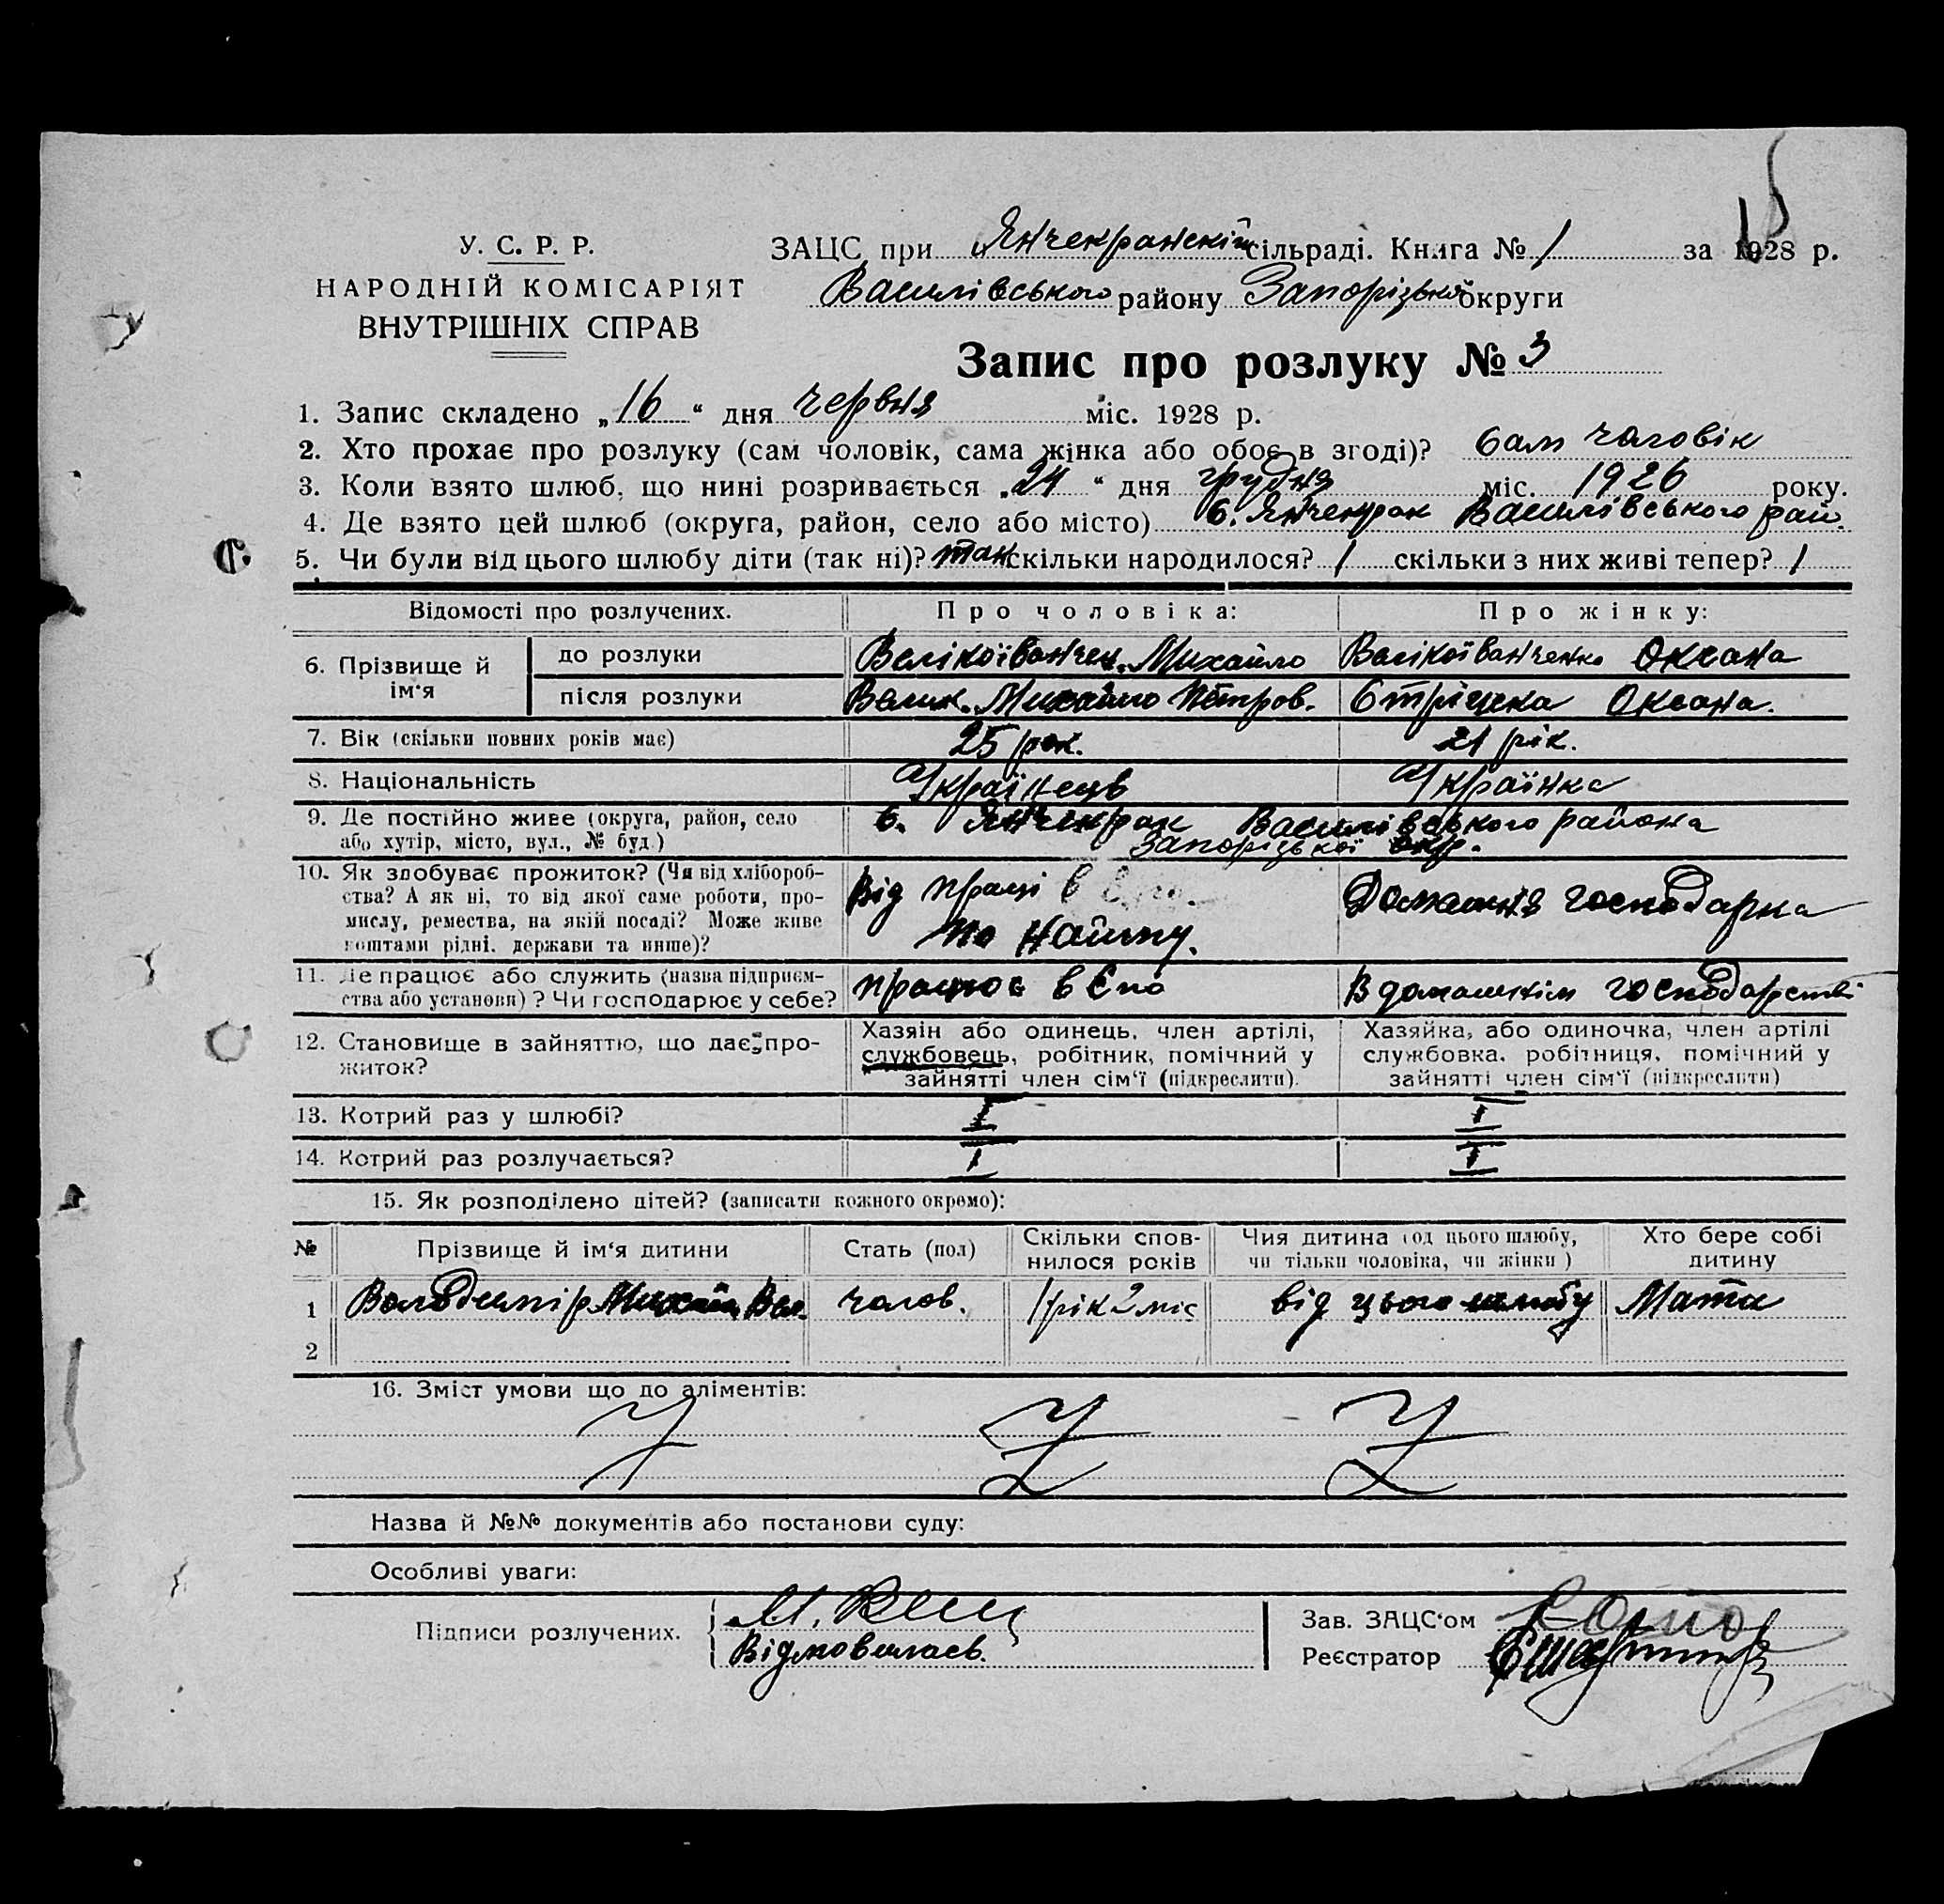 15
У. С. Р. Р.
НАРОДНІЙ КОМІСАРІЯТ
ВНУТРІШНІХ СПРАВ
ЗАЦС при Янчекранскій сільраді. Книга № 1 за 1928 р.
Василівського району Запорізької округи
Запис про розлуку № 3
1. Запис складено „16“ дня червня міс. 1928 р.
2. Хто прохає про розлуку (сам чоловік, сама жінка або обоє в згоді)? Сам чоловік
3. Коли взято шлюб, що нині розривається „24“ дня грудня міс. 1926 року.
4. Де взято цей шлюб (округа, район, село або місто) С. Янчекрак Василівського рай.
5. Чи були від цього шлюбу діти (так ні)? так скільки народилося? 1 скільки з них живі тепер? 1
Відомості про розлучених. Про чоловіка: Про жінку:
6. Прізвище й ім‘я до розлуки Велікоїванчен. Михайло Велікоїванченко Оксана
після розлуки Велик. Михайло Петров. Стріцека Оксана.
7. Вік (скільки повних років має) 25 рок. 21 рік.
8. Національність Українець Українка
9. Де постійно живе (округа, район, село або хутір, місто, вул., № буд.) С. Янчекрак Василівського района
Запорізької окр.
10. Як здобуває прожиток? (Чи від хлібороб-
ства? А як ні, то від якої саме роботи, про-
мислу, ремества, на якій посаді? Може живе
коштами рідні, держави та инше)?
Від праці в
по найму.
Домашня господарка
11. Де працює або служить (назва підприєм-
ства або установи)? Чи господарює у себе?
працює в Єпо
В домашнім господарстві
12. Становище в зайняттю, що дає про-
житок?
Хазяїн або одинець, член артілі,
службовець, робітник, помічний у
зайнятті член сім‘ї (підкреслити).
Хазяйка, або одиночка, член артілі
службовка, робітниця, помічний у
зайнятті член сім‘ї (підкреслити)
13. Котрий раз у шлюбі? I I
14. Котрий раз розлучається? I I
15. Як розподілено дітей? (записати кожного окремо):
№ Прізвище й ім‘я дитини Стать (пол) Скільки спов-
нилося років Чия дитина (од цього шлюбу,
чи тільки чоловіка, чи жінки) Хто бере собі
дитину
1 Володимір Михайл. Вел. чолов. 1 рік 2 міс від цього шлюбу Мати
2
16. Зміст умови що до аліментів:
Z Z Z
Назва й №№ документів або постанови суду:
Особливі уваги:
Підписи розлучених. М. Вел
Відмовилась.
Зав. ЗАЦС‘ом
Реєстратор